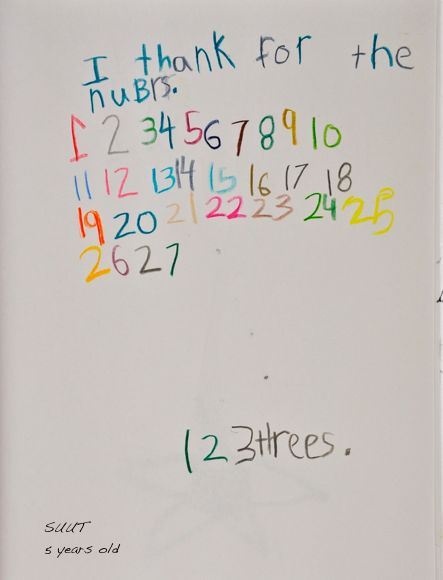 I thank for the
nuBrs.
1 2 3 4 5 6 7 8 9 10
11 12 13 14 15 16 17 18
19 20 21 22 23 24 25
26 27
1 2 3 trees.
SUUT
5 years old